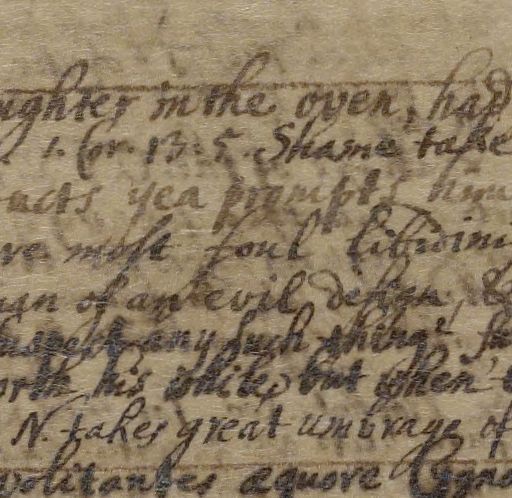 ughter in the oven, had
1. Cor. 13. 5. Shame take
ucts yea prompts him
most foul libidini
of an evil design,
any such thing
orth his while, but when
N. takes great umbrage of
volitantes æquore